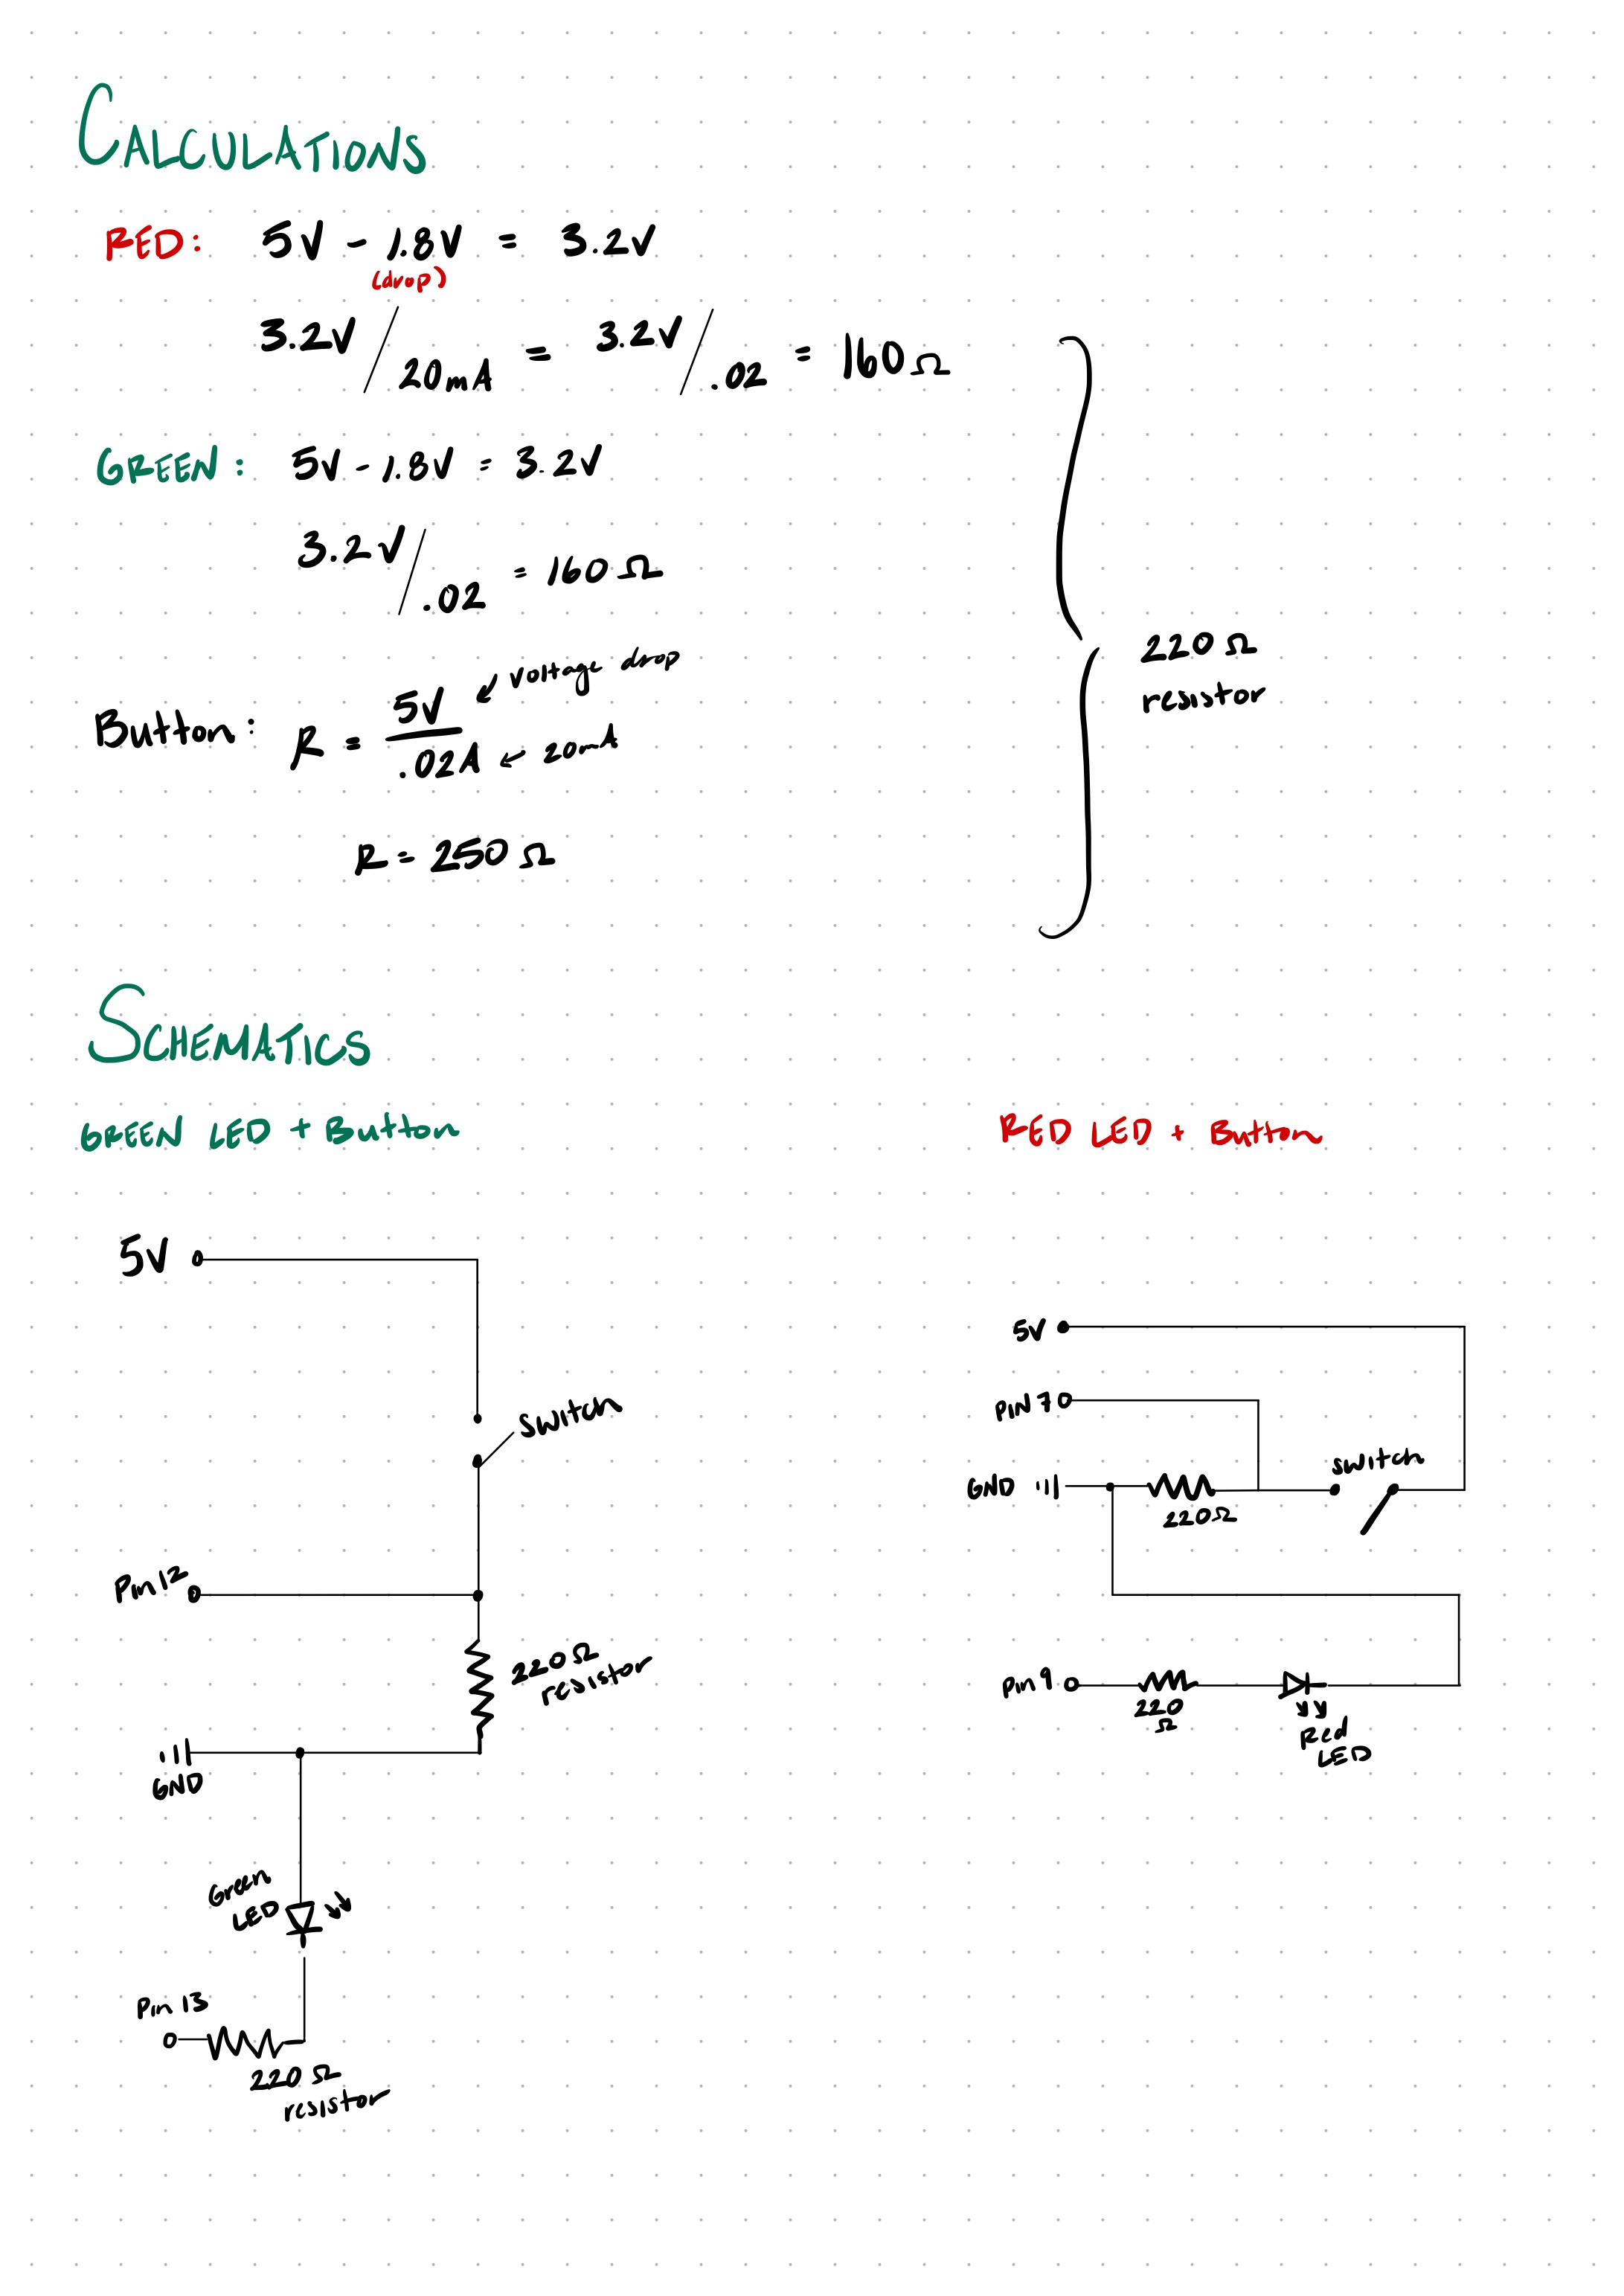 CALCULATIONS
RED: 5V - 1.8V = 3.2V
(drop)
3.2V / 20mA = 3.2V / .02 = 160 Ω
GREEN: 5V - 1.8V = 3.2V
3.2V / .02 = 160 Ω
Button: R = 5V / .02A
voltage drop
20mA
R = 250 Ω
220 Ω
resistor
SCHEMATICS
GREEN LED + Button
5V
switch
Pin 12
220 Ω
resistor
GND
Green
LED
Pin 13
220 Ω
resistor
RED LED + Button
5V
PIN 7
GND
switch
220 Ω
Pin 9
220
Ω
Red
LED